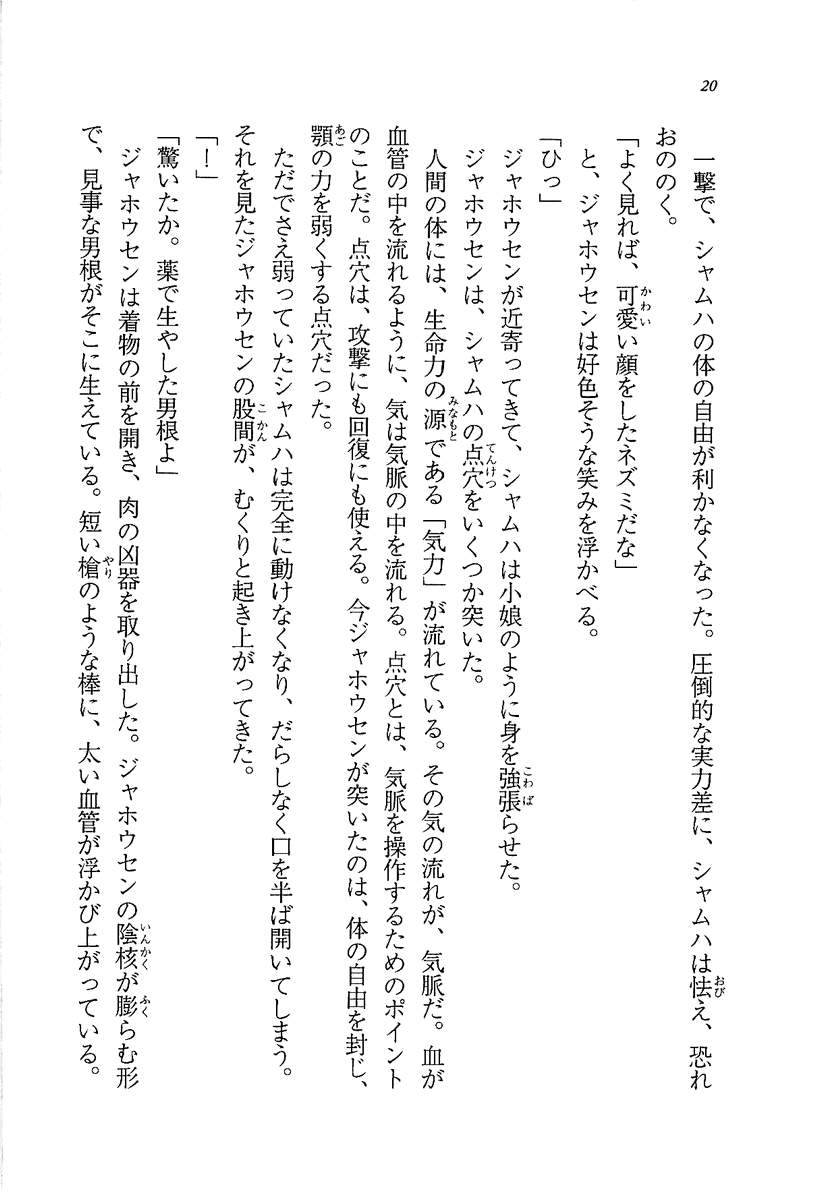 20
一撃で、シャムハの体の自由が利かなくなった。圧倒的な実力差に、シャムハは怯え、恐れ
おののく。
「よく見れば、可愛い顔をしたネズミだな」
と、ジャホウセンは好色そうな笑みを浮かべる。
「ひっ」
ジャホウセンが近寄ってきて、シャムハは小娘のように身を強張らせた。
ジャホウセンは、シャムハの点穴をいくつか突いた。
人間の体には、生命力の源である「気力」が流れている。その気の流れが、気脈だ。血が
血管の中を流れるように、気は気脈の中を流れる。点穴とは、気脈を操作するためのポイント
のことだ。点穴は、攻撃にも回復にも使える。今ジャホウセンが突いたのは、体の自由を封じ、
顎の力を弱くする点穴だった。
ただでさえ弱っていたシャムハは完全に動けなくなり、だらしなく口を半ば開いてしまう。
それを見たジャホウセンの股間が、むくりと起き上がってきた。
「！」
「驚いたか。薬で生やした男根よ」
ジャホウセンは着物の前を開き、肉の凶器を取り出した。ジャホウセンの陰核が膨らむ形
で、見事な男根がそこに生えている。短い槍のような棒に、太い血管が浮かび上がっている。